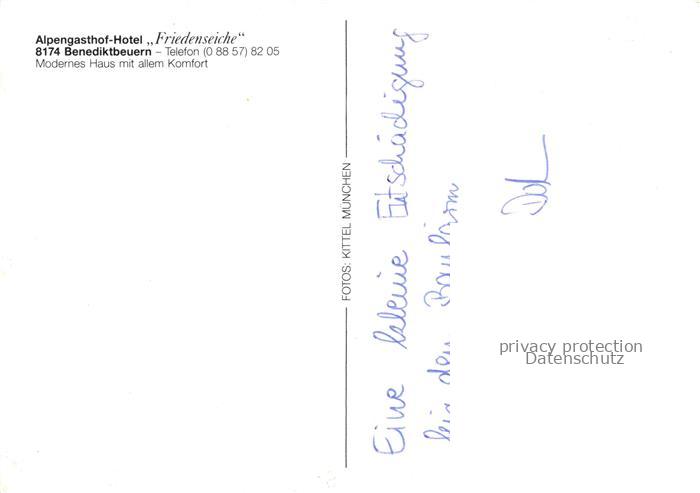 Alpengasthof-Hotel „Friedenseiche“
8174 Benediktbeuern – Telefon (0 88 57) 82 05
Modernes Haus mit allem Komfort
FOTOS: KITTEL MÜNCHEN
Eine kleine Entschädigung
den Baulärm
privacy protection
Datenschutz